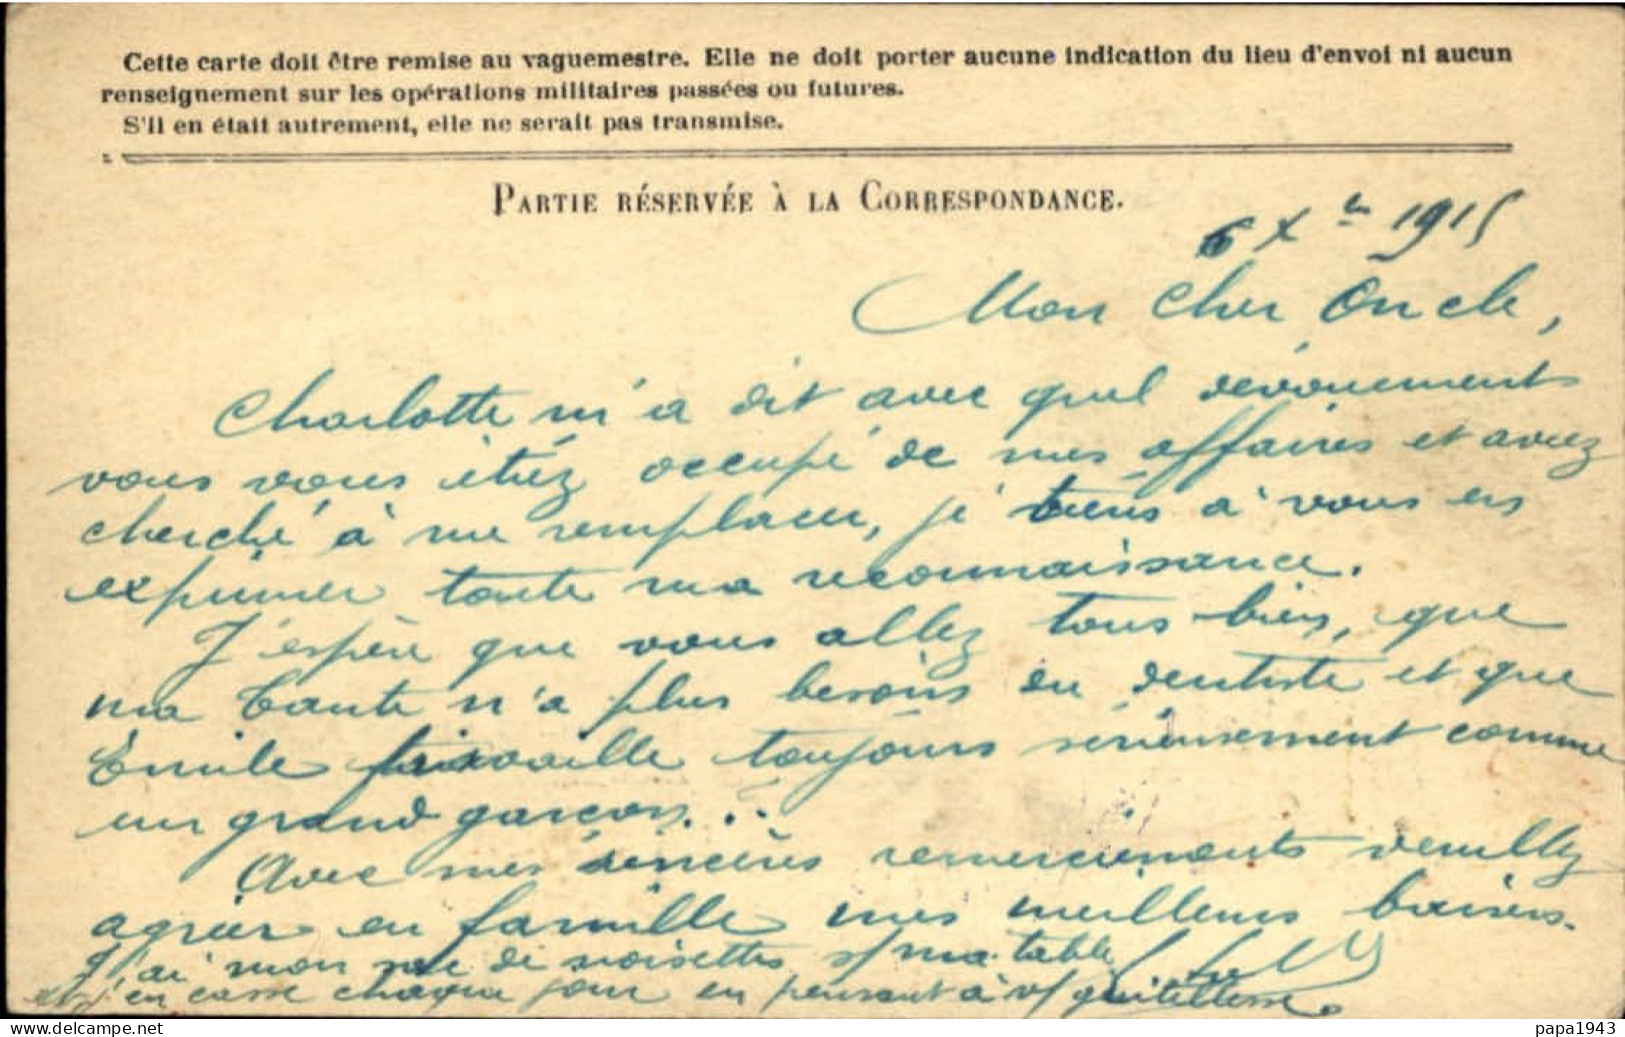 Cette carte doit être remise au vaguemestre. Elle ne doit porter aucune indication du lieu d'envoi ni aucun
renseignement sur les opérations militaires passées ou futures.
S'il en était autrement, elle ne serait pas transmise.
PARTIE RÉSERVÉE À LA CORRESPONDANCE.
6 Xbre 1915
Mon Cher Oncle,
Charlotte m'a dit avec quel dévouement
vous vous étiez occupé de mes affaires et aviez
cherché à me remplacer, je tiens à vous en
exprimer toute ma reconnaissance.
J'espère que vous allez tous bien, que
ma tante n'a plus besoin du dentiste et que
Émile travaille toujours sérieusement comme
un grand garçon...
Avec mes sincères remerciements veuillez
agréer en famille mes meilleurs baisers.
J'ai mon sac de noisettes s/ ma table
et j'en casse chaque jour en pensant à v/ gentillesse.
papa1943